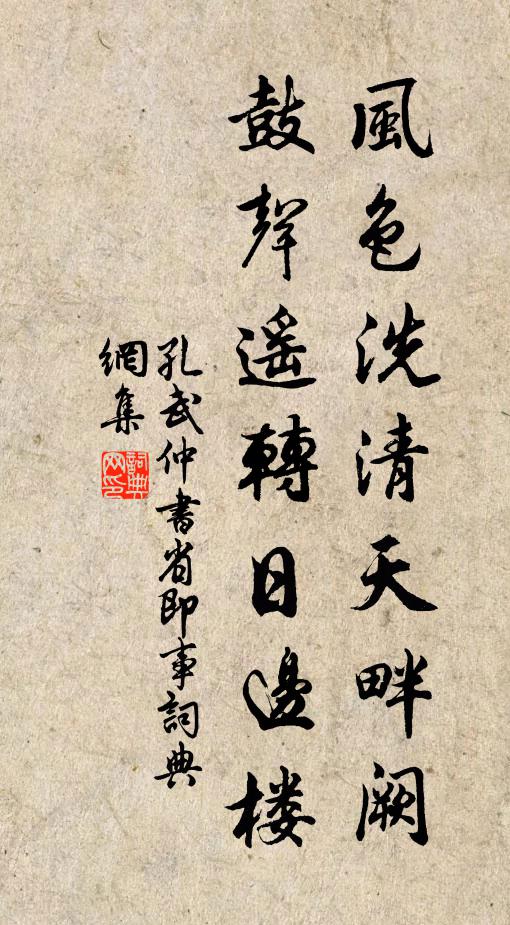 風色洗清天畔闕
鼓聲遥轉日邊樓
孔武仲書省即事詞典
網集
詞典
网印